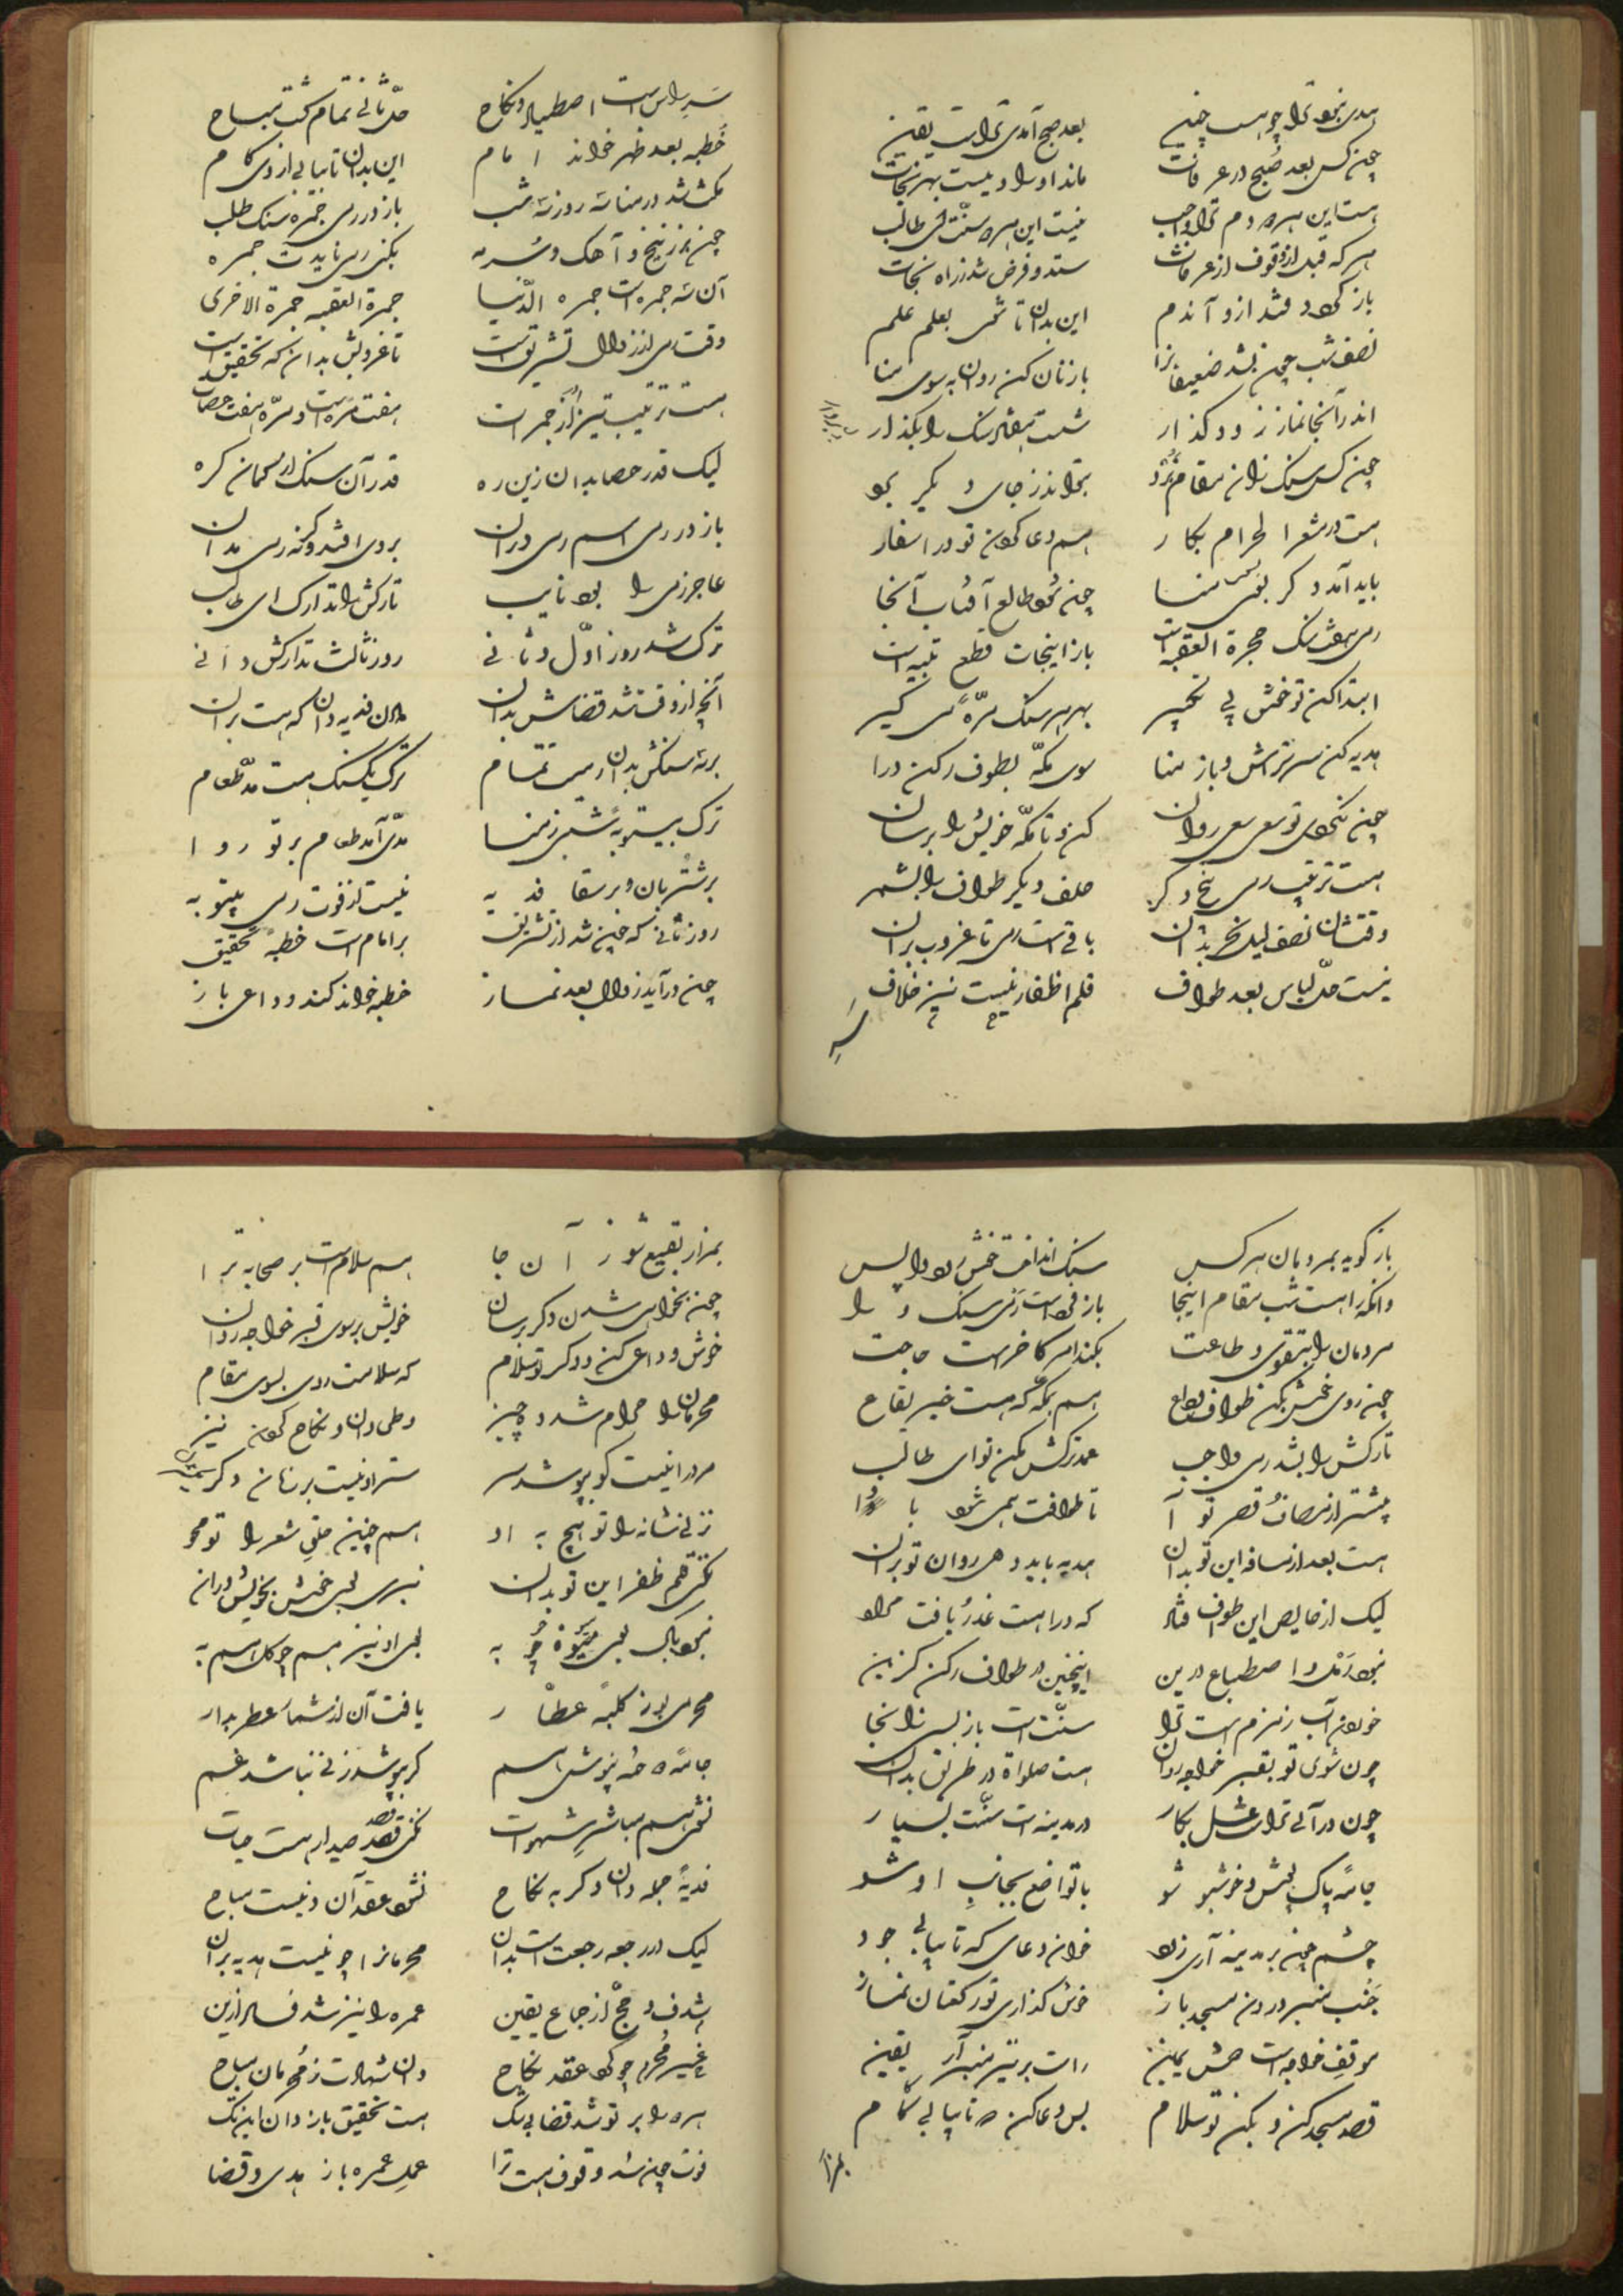 هدی نبود ترا چو هست چنین بعد صبح آمدی ترا است یقین
چون کس بعد صبح در عرفات ماند او را و نیست بهر نجات
هست این هر دو دم ترا واجب نیست این هر دو سنت ای طالب
هر که قبل از وقوف از عرفات ستد و فرض شد ز راه نجات
باز کرد و فتد ازو آندم این بدان تا شوی بعلم علم
نصف شب چون بشد ضعیفانرا با زنان کن روان به سوی منا
اندر آنجا نماز زود گذار شصت سنگ را بگذار
چون کس سنگ زان مقام نبرد بتواند ز جای دیگر برد
هست در مشعر الحرام بکار هم دعا کردن تو در اسفار
باید آمد دگر بسوی منا چون شود طالع آفتاب آنجا
رمی هفت سنگ جمرة العقبه است باز اینجات قطع تلبیه است
ابتدا کن تو خوش پی تکبیر بهر هر سنگ مرّه می گیر
هدیه کن سر تراش و باز منا سوی مکّه بطوف رکن درا
چون نکردی تو سعی سعی روان کن و تا مکّه خویش را برسان
هست ترتیب رمی نحر دگر حلق و دیگر طواف را بشمر
وقتشان نصف لیل نحر بدان باقی است رمی تا غروب بران
نیست حلّ لباس بعد طواف قلم اظفار نیست نیز خلاف
سر
سر پراس است اصطیاد و نکاح حلّ ثانی تمام گشت مباح
خطبه بعد ظهر خواند امام این بدان تا بیابی از وی کام
مکث شد در منا سه روز سه شب باز در رمی جمره سنگ طلب
چون ز زرنیخ و آهک و سرمه بکنی رمی نایدت جمره
آن سه جمره است جمره الدّنیا جمرة العقبه جمرة الاخری
وقت رمی از زوال تشریق است تا غروبش بدان که تحقیق است
هست ترتیب نیز در جمرات هفت مرّه است و مرّه هفت حصات
لیک قدر حصا بدان زین ره قدر آن سنگ
باز در رمی اسم رمی دران بروی افتد و گرنه رمی مدان
عاجز رمی را بود نایب تارکش را تدارک ای طالب
ترک شد روز اوّل و ثانی روز ثالث تدارکش دانی
آنچه ازو فوت شد قضایش بدان فدیه دان که هست بران
بر سه سنگش بدان دمیست تمام ترک یک سنگ هست مدّ طعام
ترک بیتوته شبی ز منا مدّی آمد طعام بر تو روا
بر شتربان و بر سقا فدیه نیست از فوت رمی بیتوته
روز ثانی که چون شد از تشریق بر امام است خطبه تحقیق
چون درآید زوال بعد نماز خطبه خواند کند وداعی باز
باز گوید بمردمان هر کس سنگ انداخت خوش رود واپس
وانکه را هست شب مقام اینجا باز فرض است رمی سنگ ورا
مردمان را بتقوی و طاعت بکند امر کاخر است حاجت
چون روی خوش بکن طواف وداع هم بمکّه که هست خیر بقاع
تارکش را بشد دمی واجب عمد ترکش مکن تو ای طالب
پیشتر از مصاف قصر تو آ تا طوافت همی شود با
هست بعد از مسافه این تو بدان هدیه باید دهی روان تو بران
لیک از حایض این طواف فتاد که ورا هست عذر یافت مراد
نبود رمل و اصطباع درین اینچنین در طواف رکن گزین
خوردن آب زمزم است ترا سنّت است باز بس زانجا
چون شوی تو بقبر خواجه روان هست صلواة در طریق بدان
چون درآئی ترا غسل بکار در مدینه است سنّت بسیار
جامه پاک پوش و خوشبو شو با تواضع بجانب او شو
چشم چون بر مدینه آری زود خوان دعای که تا بیابی جود
جنب منبر درون مسجد باز خوش گذاری تو رکعتان نماز
موقف خواجه است حسن یمین راست بر نیز منبر آر یقین
قصد مسجد کن و بکن تو سلام بس دعا کن که تا بیابی کام
بمزار
بمزار بقیع شو ز آن جا هم سلام است بر صحابه ترا
چون بخواهی شدن دگر برسان خویش بر سوی قبر خواجه روان
خوش وداعی کن و دگر تو سلام که سلامت روی بسوی مقام
محرمان را حرام شد دو چیز وطی دان و نکاح کردن نیز
مرد را نیست کو بپوشد سر ستر او نیست بر زنان دگر
نزنی شانه را تو هیچ به او هم چنین حلق شعر را تو مجو
نکنی قلم ظفر این تو بدان نبری بوی خوش بخویش دران
نبود باک بوی میوه و به بوی او نیز هم چو گل اسم به
محرمی بود ز کلبه عطار یافت آن از شما عطر بدار
جامه پوشش اسم گر بپوشد زنی نباشد غم
نشوی هم مباشر شهوات نکنی قصد صید او هست حیات
فدیه جمله دان دگر به نکاح نشود عقد آن و نیست مباح
لیک در رجعه رجعت است بدان محرمانرا چو نیست هدیه بران
شد فسد حج از جماع یقین عمره را نیز شد فساد ازین
غیر محرم چو کرد عقد نکاح دان شهادت ز محرمان مباح
هر دو را بر تو شد قضا بی شک هست تحقیق باز دان این یک
فوت چون شد وقوف هست ترا عمل عمره باز هدی و قضا